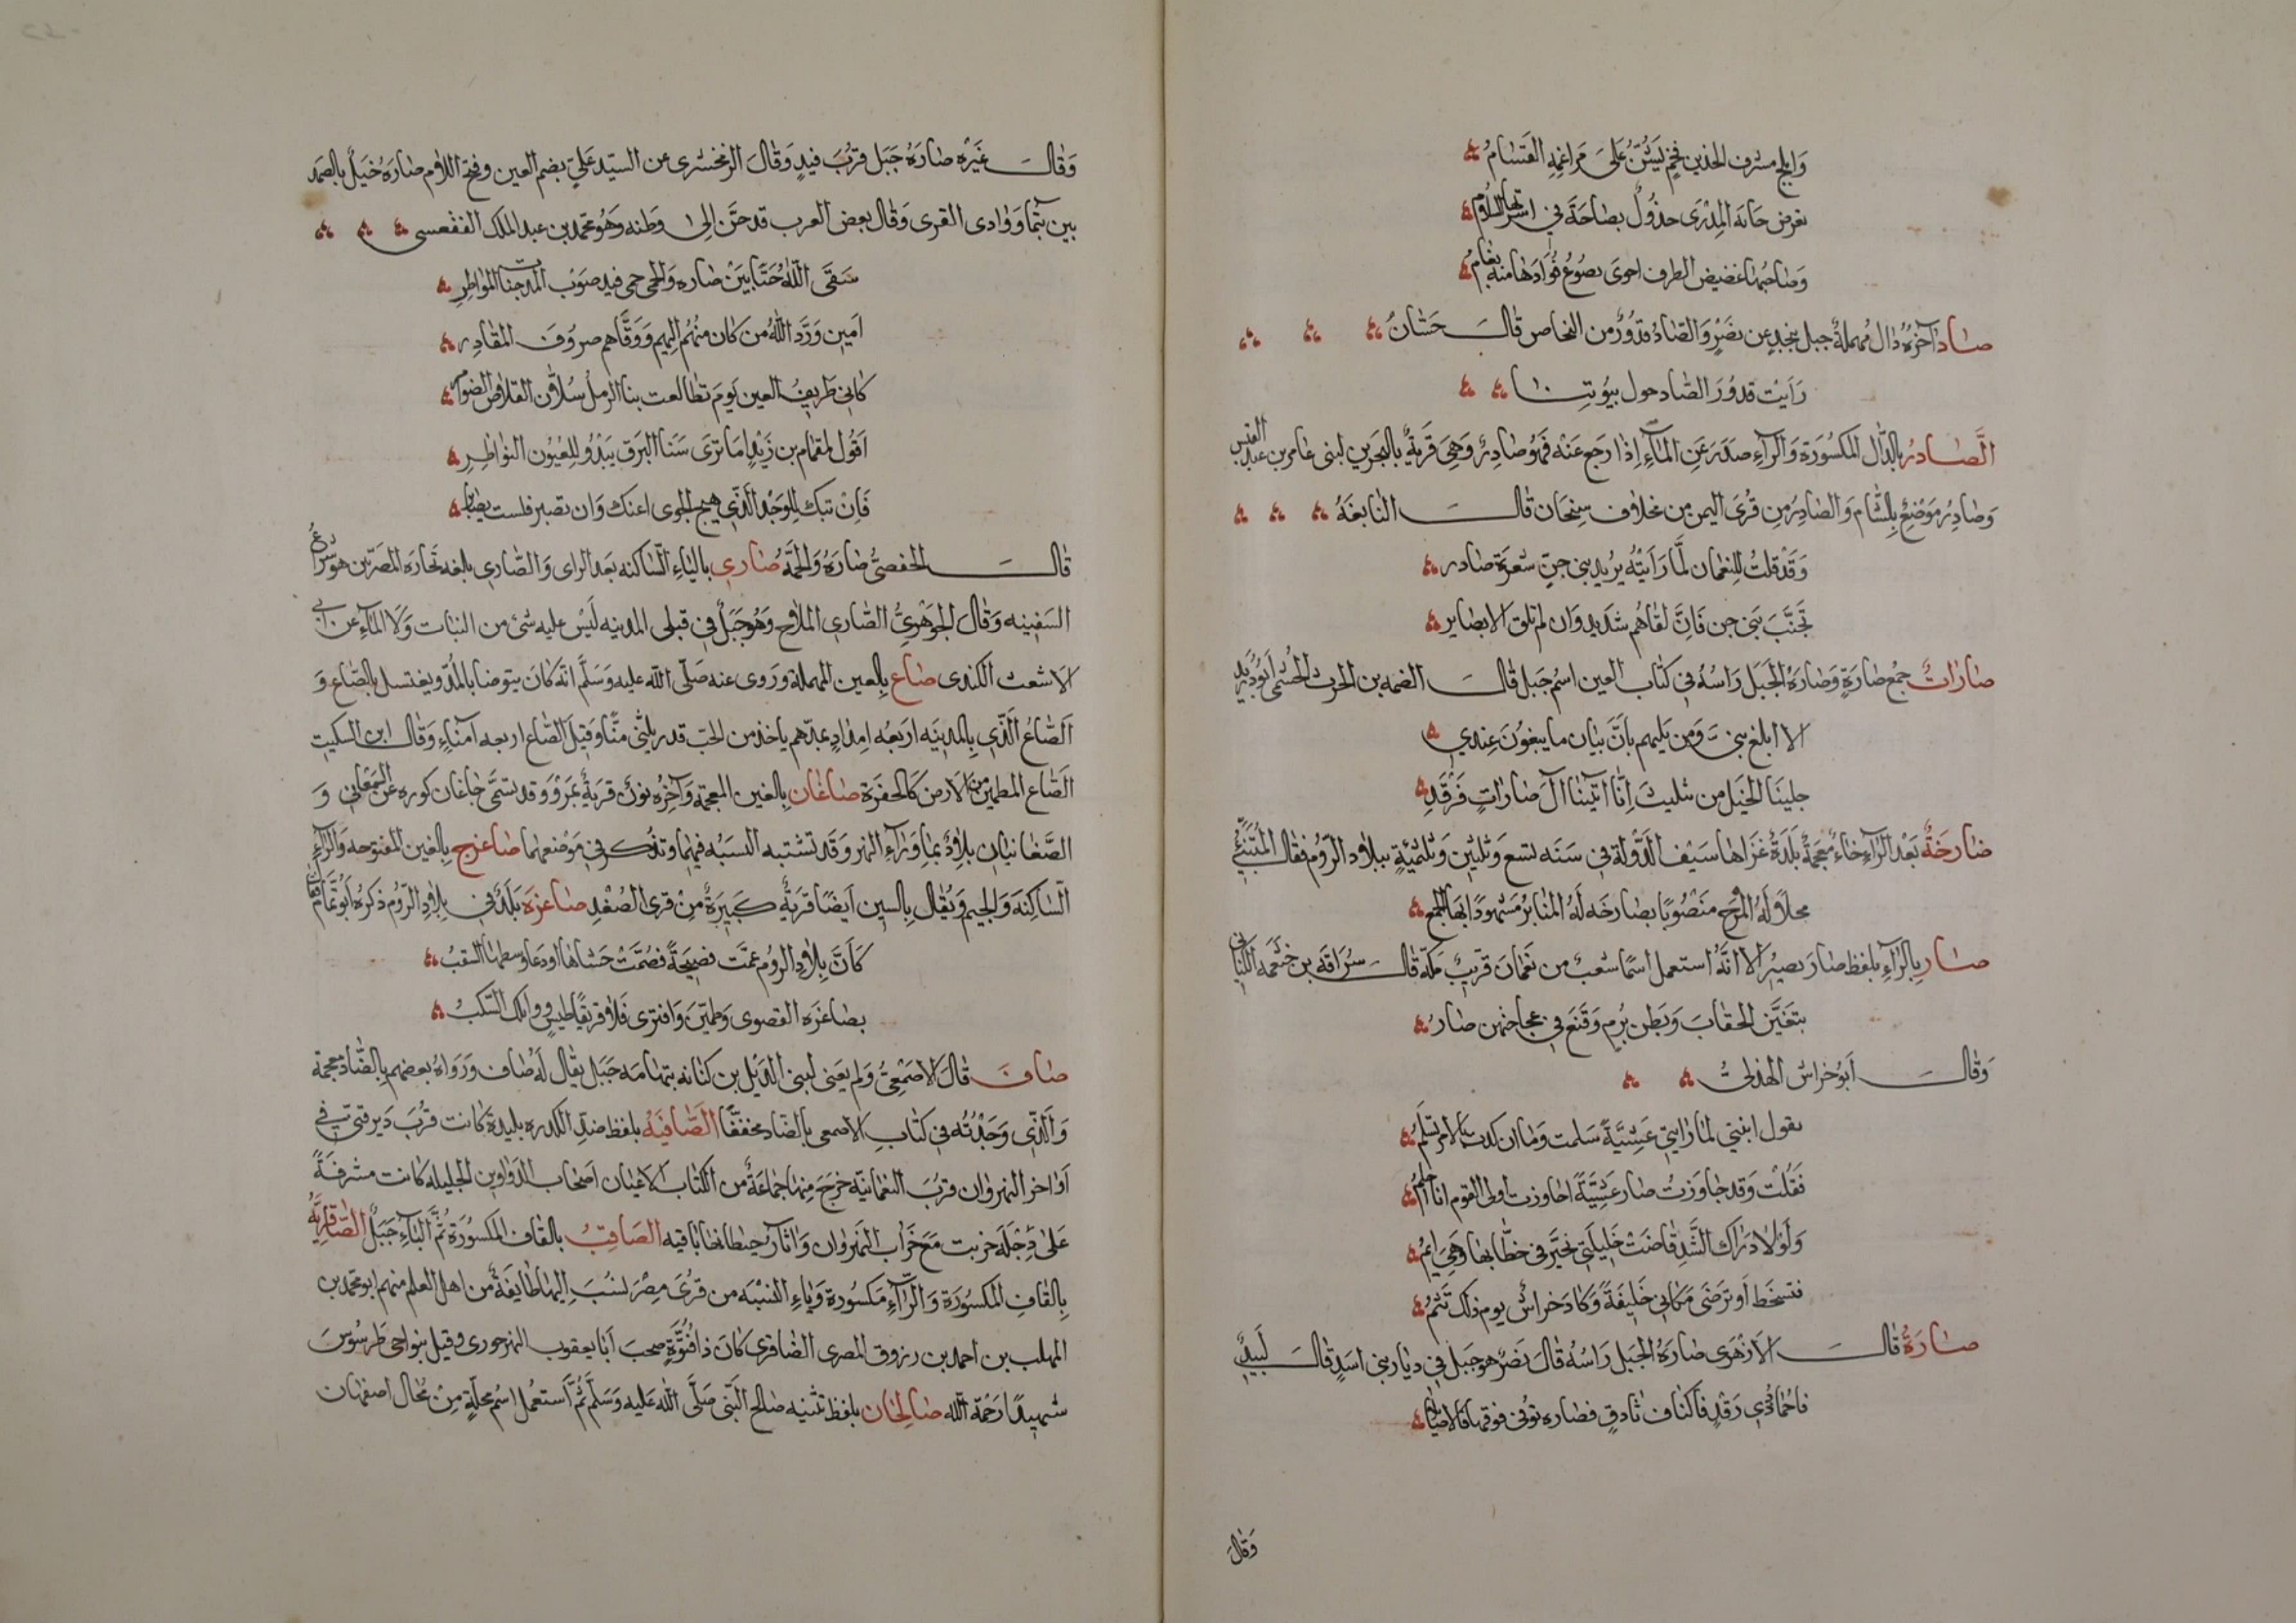 وابلج مشرف الخدين فخم يسن على مراغمه القسام
تعرض جابه المدرى خذول بصاحة في اسرتها السلام
وصاحبها غضيض الطرف احوى يصوع فؤادها منه بغام
صاد آخره دال مهملة جبل بنجد عن نصر والصاد قدور من النحاس قال حسان
رايت قدور الصاد حول بيوتنا
الصادر بالدال المكسورة والراء صدر عن الماء اذا رجع عنه فهو صادر وهي قرية بالبحرين لبنى عامر بن عبد القيس
وصادر موضع بالشام والصادر من قرى اليمن من مخلاف سنحان قال النابغة
وقد قلت للنعمان لما رايته يريد بني جن بثغرة صادر
تجنب بني جن فان لقاهم شديد وان لم تلق الا بصابر
صارات جمع صارة وصارة الجبل راسه في كتاب العين اسم جبل قال الصمه بن الحرث الجشمي ابو دريد
الا ابلغ بني ومن يليهم بان بيان ما يبغون عندي
جلبنا الخيل من تثليث انا اتينا آل صارات فرقد
صارخة بعد الراء خاء معجمة بلدة غزاها سيف الدولة في سنه تسع وثلثين وثلثمئة ببلاد الروم فقال المتنبي
مخلا له المرج منصوبا بصارخه له المنابر مشهودا بها الجمع
صار بالراء بلفظ صار يصير الا انه استعمل اسما شعب من نعمان قريب مكة قال سراقه بن خثعمه الكناني
تبغين الحقاب وبطن برم وقنع في عجاجتهن صار
وقال ابو خراش الهذلي
تقول ابنتي لما راتني عشية سلمت وما ان كدت بالامس تسلم
فقلت وقد جاوزت صار عشية اجاوزت اولى القوم ام انا احلم
ولولا دراك الشد قاضت خليلتي تخير في خطابها وهي ايم
فتسخط او ترضى مكاني خليفة وكاد خراش يوم ذلك تيتم
صارة قال الازهرى صارة الجبل راسه قال نصر هو جبل في ديار بني اسد قال لبيد
فاجماد ذي رقد فاكناف ثادق فصارة توفى فوقها فالاصايلا
وقال
وقال غيره صارة جبل قرب فيد وقال الزمخشرى عن السيد علي بضم العين وفتح اللام صارة خيل بالصمد
بين تيما ووادى القرى وقال بعض العرب قد حن الى وطنه وهو محمد بن عبد الملك الفقعسى
سقى الله حيا بين صاره والحمى حمى فيد صوب المدجنات المواطر
امين ورد الله من كان منهم اليهم ووقاهم صروف المقادر
كاني طريف العين يوم تطالعت بنا الرمل سلاف القلاص الضوامر
اقول لمقمام بن زيد اما ترى سنا البرق يبدو للعيون النواظر
فان تبك للوجد الذي هيج الجوى اعنك وان تصبر فلست بصابر
قال الحفصي صارة والحمة صاري بالياء الساكنه بعد الراى والصارى بلغه تجارة المصريين هو شراع
السفينه وقال الجوهري الصاري الملاح وهو جبل في قبلى المدينه ليس عليه شئ من النبات ولا الماء عن ابى
الاشعث الكندى صاع بالعين المهملة وروى عنه صلى الله عليه وسلم انه كان يتوضا بالمد ويغتسل بالصاع و
الصاع الذي بالمدينه اربعه امداد ومدهم ياخذ من الحب قدر ثلثى منا وقيل الصاع اربعه امناء وقال ابن السكيت
الصاع المطمين من الارض كالحفرة صاغان بالغين المعجمة وآخره نون قرية بمرو وقد تسمى جاغان كوره عن السمعاني و
الصغانيان بلاد بما وراء النهر وقد تشتبه النسبه فيهما وتذكر في موضعهما صاغرج بالغين المفتوحه والراء
الساكنة والجيم ويقال بالسين ايضا قرية كبيرة من قرى الصغد صاغرة بلد في بلاد الروم ذكره ابو تمام فقال
كان بلاد الروم عمت بصيحة فضمت حشاها او دعا وسطها السقب
بصاغرة القصوى وطمين واقترى فلا قريقاطيس ووابلك السكب
صاف قال الاصمعي ولم يعنى لبني الديل بن كنانه بتهامه جبل يقال له صاف ورواه بعضهم بالضاد معجمة
والذي وجدته في كتاب الاصمعى بالصاد مخففا الصافية بلفظ ضد الكدره بليدة كانت قرب دير قنى في
اواخر النهروان قرب النعمانية خرج منها جماعة من الكتاب الاعيان اصحاب الدواوين الجليله كانت مشرفة
على دجلة خربت مع خراب النهروان وآثار حيطانها باقيه الصاقب بالقاف المكسورة ثم الباء جبل الصاقرية
بالقاف المكسورة والراء مكسورة وياء النسبه من قرى مصر نسب اليها طايفة من اهل العلم منهم ابو محمد بن
المهلب بن احمد بن رزوق المصرى الصاقرى كان ذا فتوة صحب ابا يعقوب النهرجورى وقيل بنواحى طرسوس
شهيدا رحمة الله صالحان بلفظ تثنيه صالح النبى صلى الله عليه وسلم ثم استعمل اسم محلة من محال اصفهان